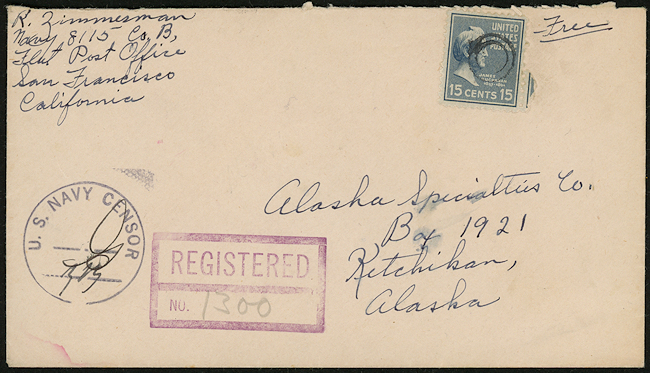 R. Zimmerman
Navy 8115 Co B,
Fleet Post Office
San Francisco
California
Free
UNITED
STATES
POSTAGE
JAMES
BUCHANAN
15 CENTS 15
U. S. NAVY CENSOR
REGISTERED
NO. 1300
Alaska Specialties Co.
Box 1921
Ketchikan,
Alaska